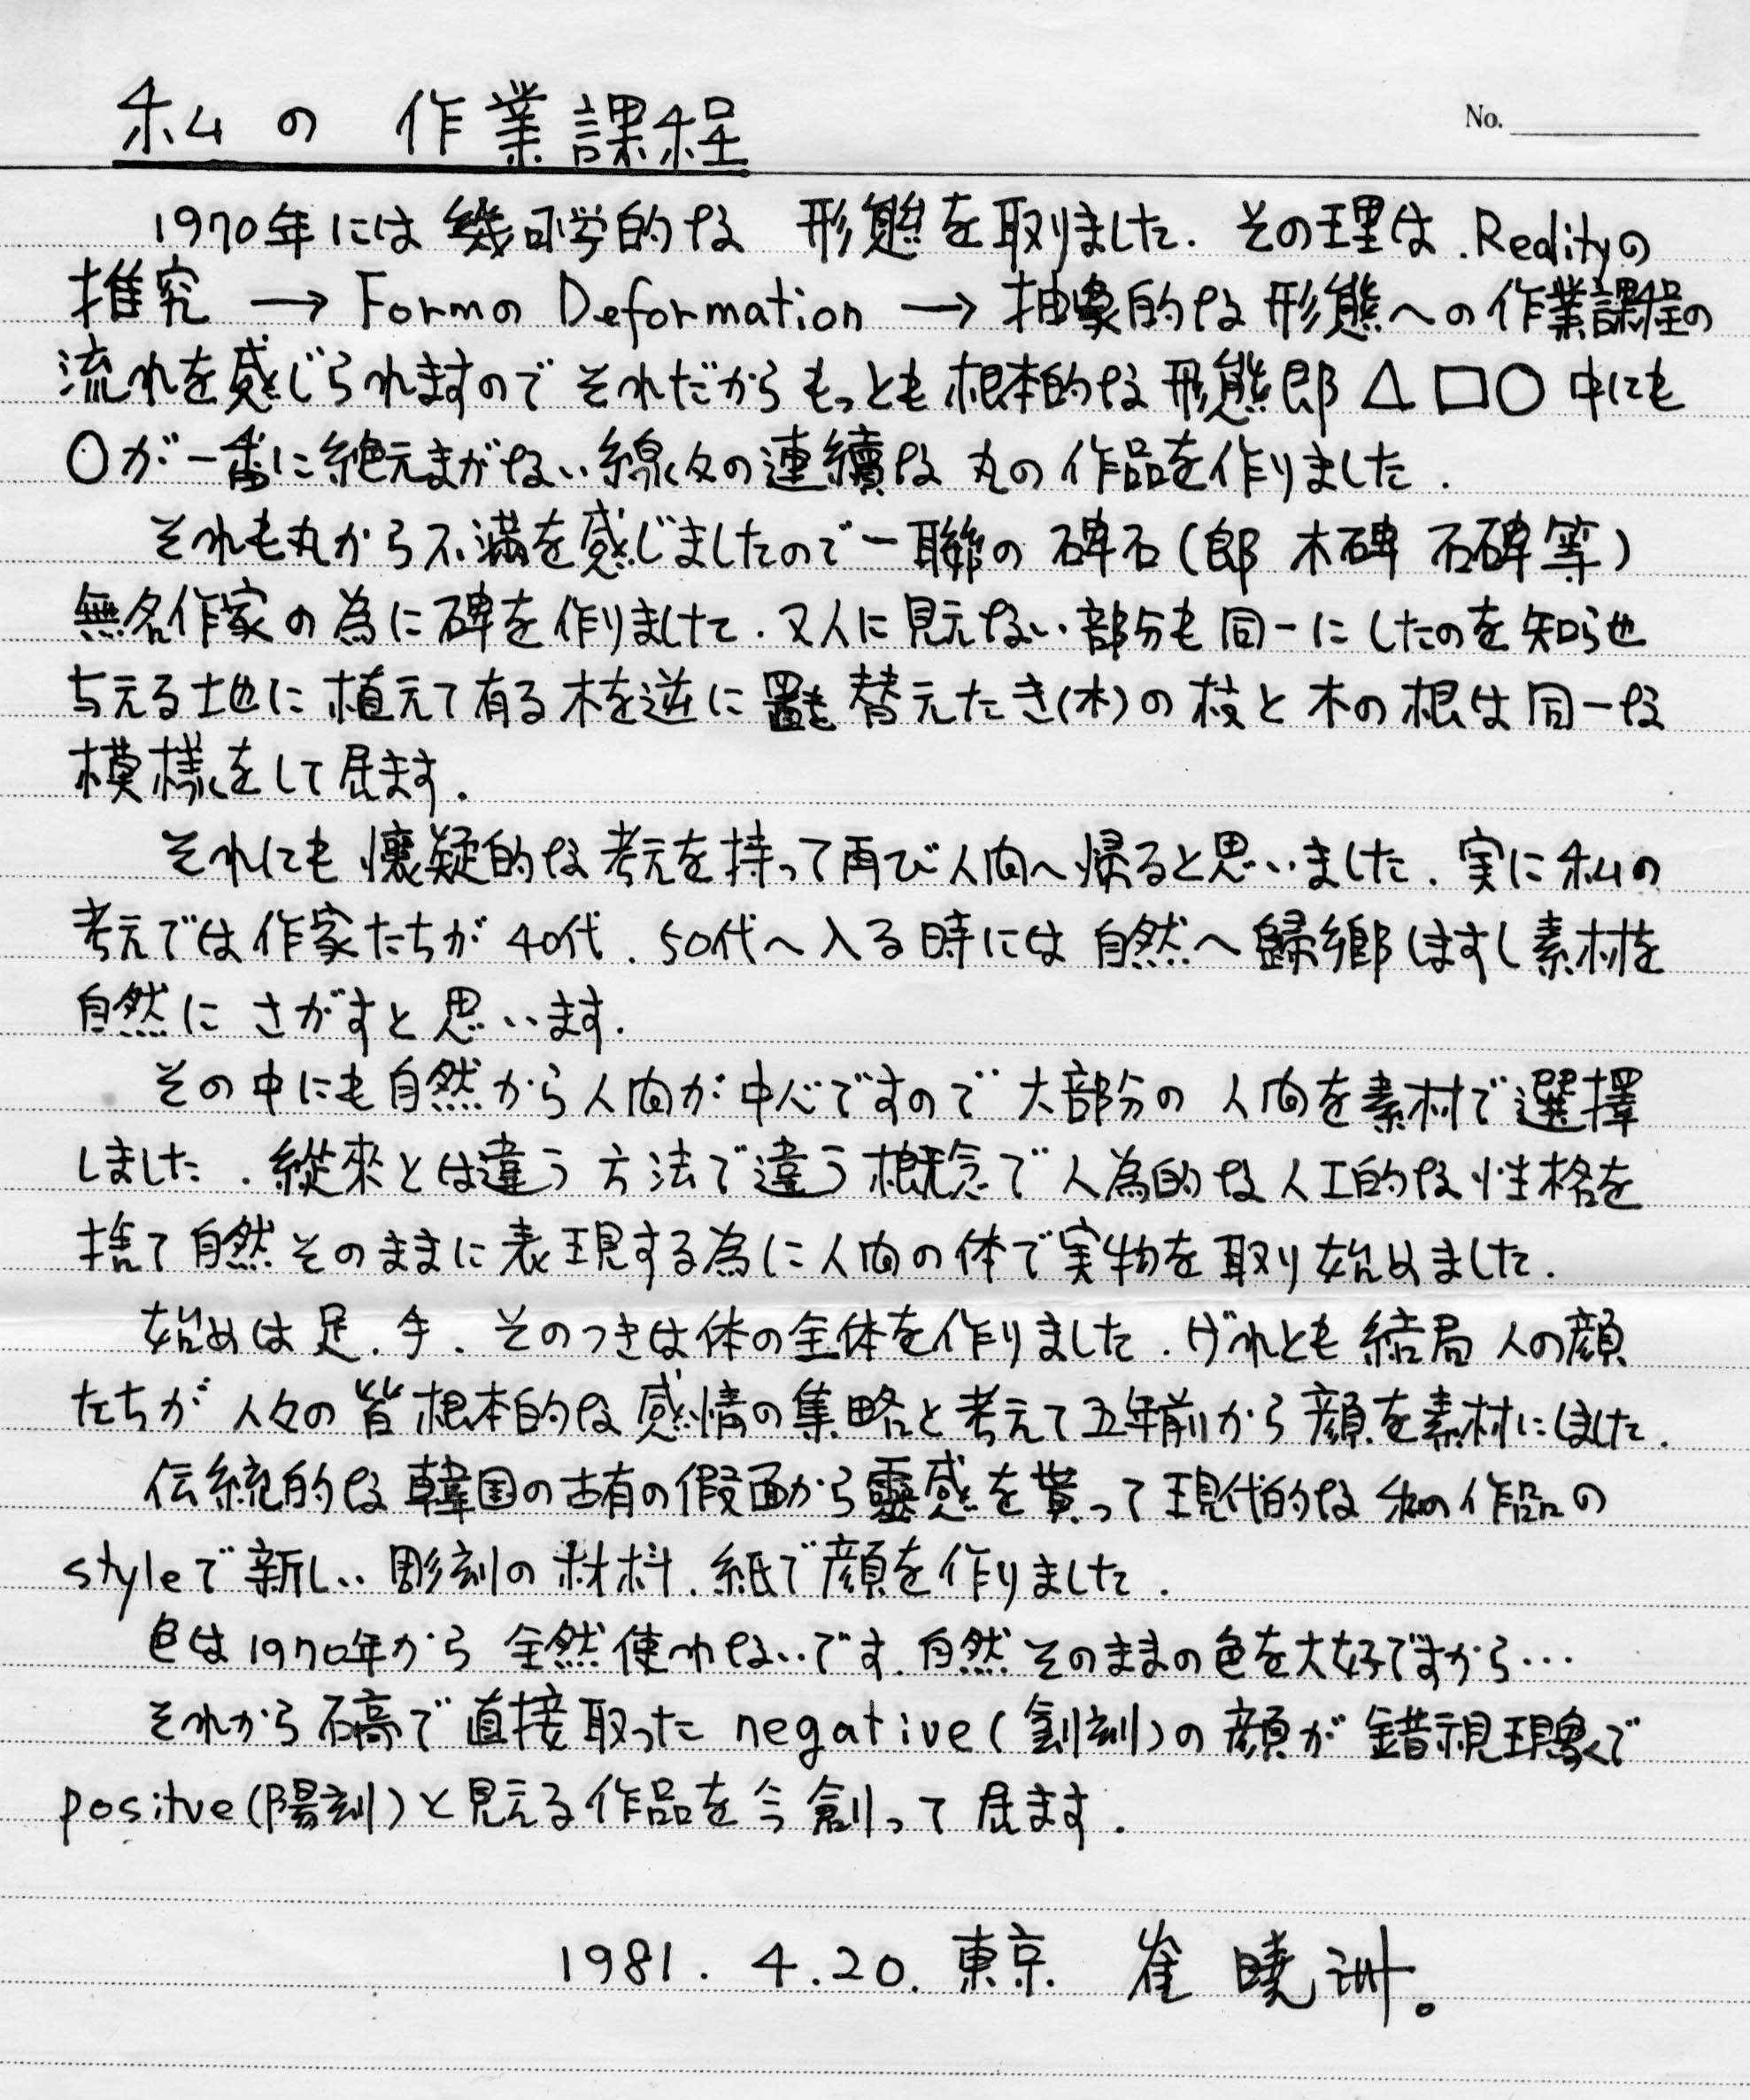 私の 作業課程
No.
1970年には 幾何学的な 形態を取りました. その理は. Realityの
推究 → Formの Deformation → 抽象的な形態への作業課程の
流れを感じられますので それだから もっとも根本的な形態郎 △□○ 中にも
○が一番に絶えまがない線々の連續な 丸の作品を作りました.
それも丸から不満を感じましたので一聯の 碑石(郎 木碑 石碑等)
無名作家の為に碑を作りました. 又人に見えない部分も同一にしたのを知らせ
ちえる土地に植えて有る木を逆に置き替えたき(木)の枝と木の根は同一な
模様をして居ます.
それにも懐疑的な考えを持って再び人間へ帰ると思いました. 実に私の
考えでは作家たちが 40代. 50代へ入る時には 自然へ歸郷しますし素材を
自然に さがすと思います.
その中にも自然から人間が中心ですので 大部分の 人間を素材で選擇
しました. 縦來とは違う方法で違う概念で人為的な人工的な性格を
捨て自然そのままに表現する為に人間の体で実物を取り始めました.
始めは足. 手. そのつきは体の全体を作りました. けれとも結局人の顔
たちが 人々の皆根本的な感情の集略と考えて五年前から顔を素材にしました.
伝統的な韓国の古有の假面から靈感を貰って現代的な私の作品の
styleで新しい彫刻の材料. 紙で顔を作りました.
色は1970年から 全然使わないです. 自然そのままの色を大好ですから…
それから石高で直接取った negative(刻)の顔が錯視現象で
positve(陽刻)と見える作品を今創って居ます.
1981. 4.20. 東京. 崔 曉洲。